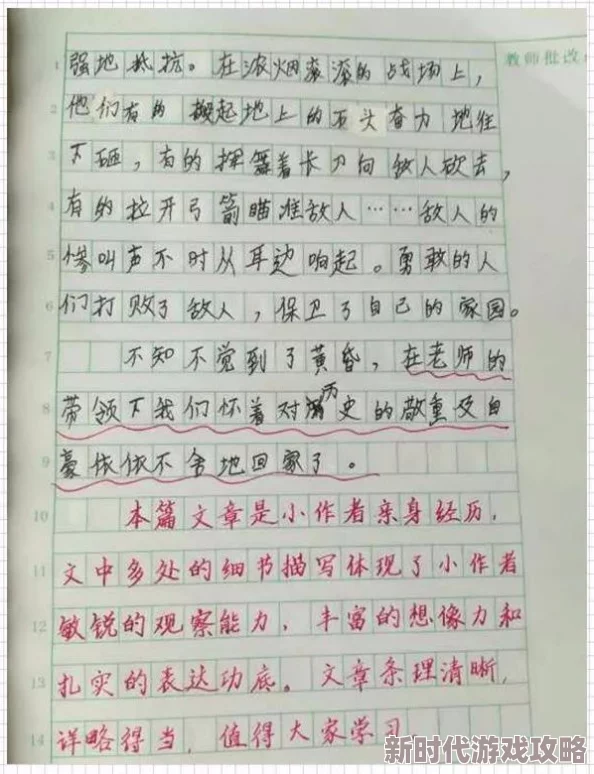 教师批改
1 强地抵抗。在浓烟滚滚的战场上，
2 他们有的搬起地上的石头奋力地往
3 下砸，有的挥舞着长刀向敌人砍去，
4 有的拉开弓箭瞄准敌人……敌人的
5 惨叫声不时从耳边响起。勇敢的人
6 们打败了敌人，保卫了自己的家园。
7 不知不觉到了黄昏，在老师的
8 带领下我们怀着对历史的敬重及自
9 豪依依不舍地回家了。
10 本篇文章是小作者亲身经历，
11 文中多处的细节描写体现了小作者
12 敏锐的观察能力、丰富的想像力和
13 扎实的表达功底。文章条理清晰，
14 详略得当，值得大家学习
新时代游戏攻略